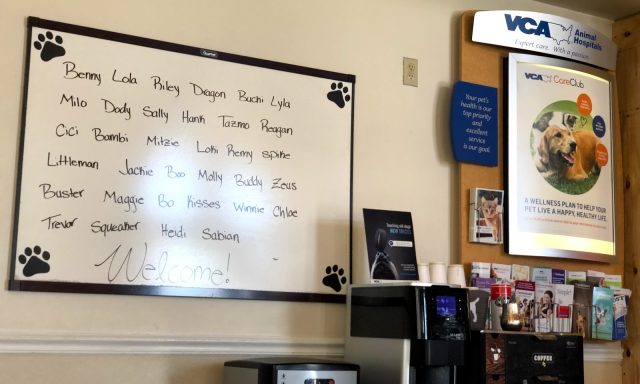 Quartet
Benny Lola Riley Dragon Buchi Lyla
Milo Dody Sally Hank Tazmo Reagan
Cici Bambi Mitzie Loki Remy Spike
Littleman Jackie Boo Molly Buddy Zeus
Buster Maggie Bo Kisses Winnie Chloe
Trevor Squeaker Heidi Sabian
Welcome!
VCA Animal Hospitals
Expert care. With a passion.
Your pet's
health is our
top priority
and excellent
service is
our goal.
VCA CareClub
A WELLNESS PLAN TO HELP YOUR
PET LIVE A HAPPY, HEALTHY LIFE
VCA
COFFEE